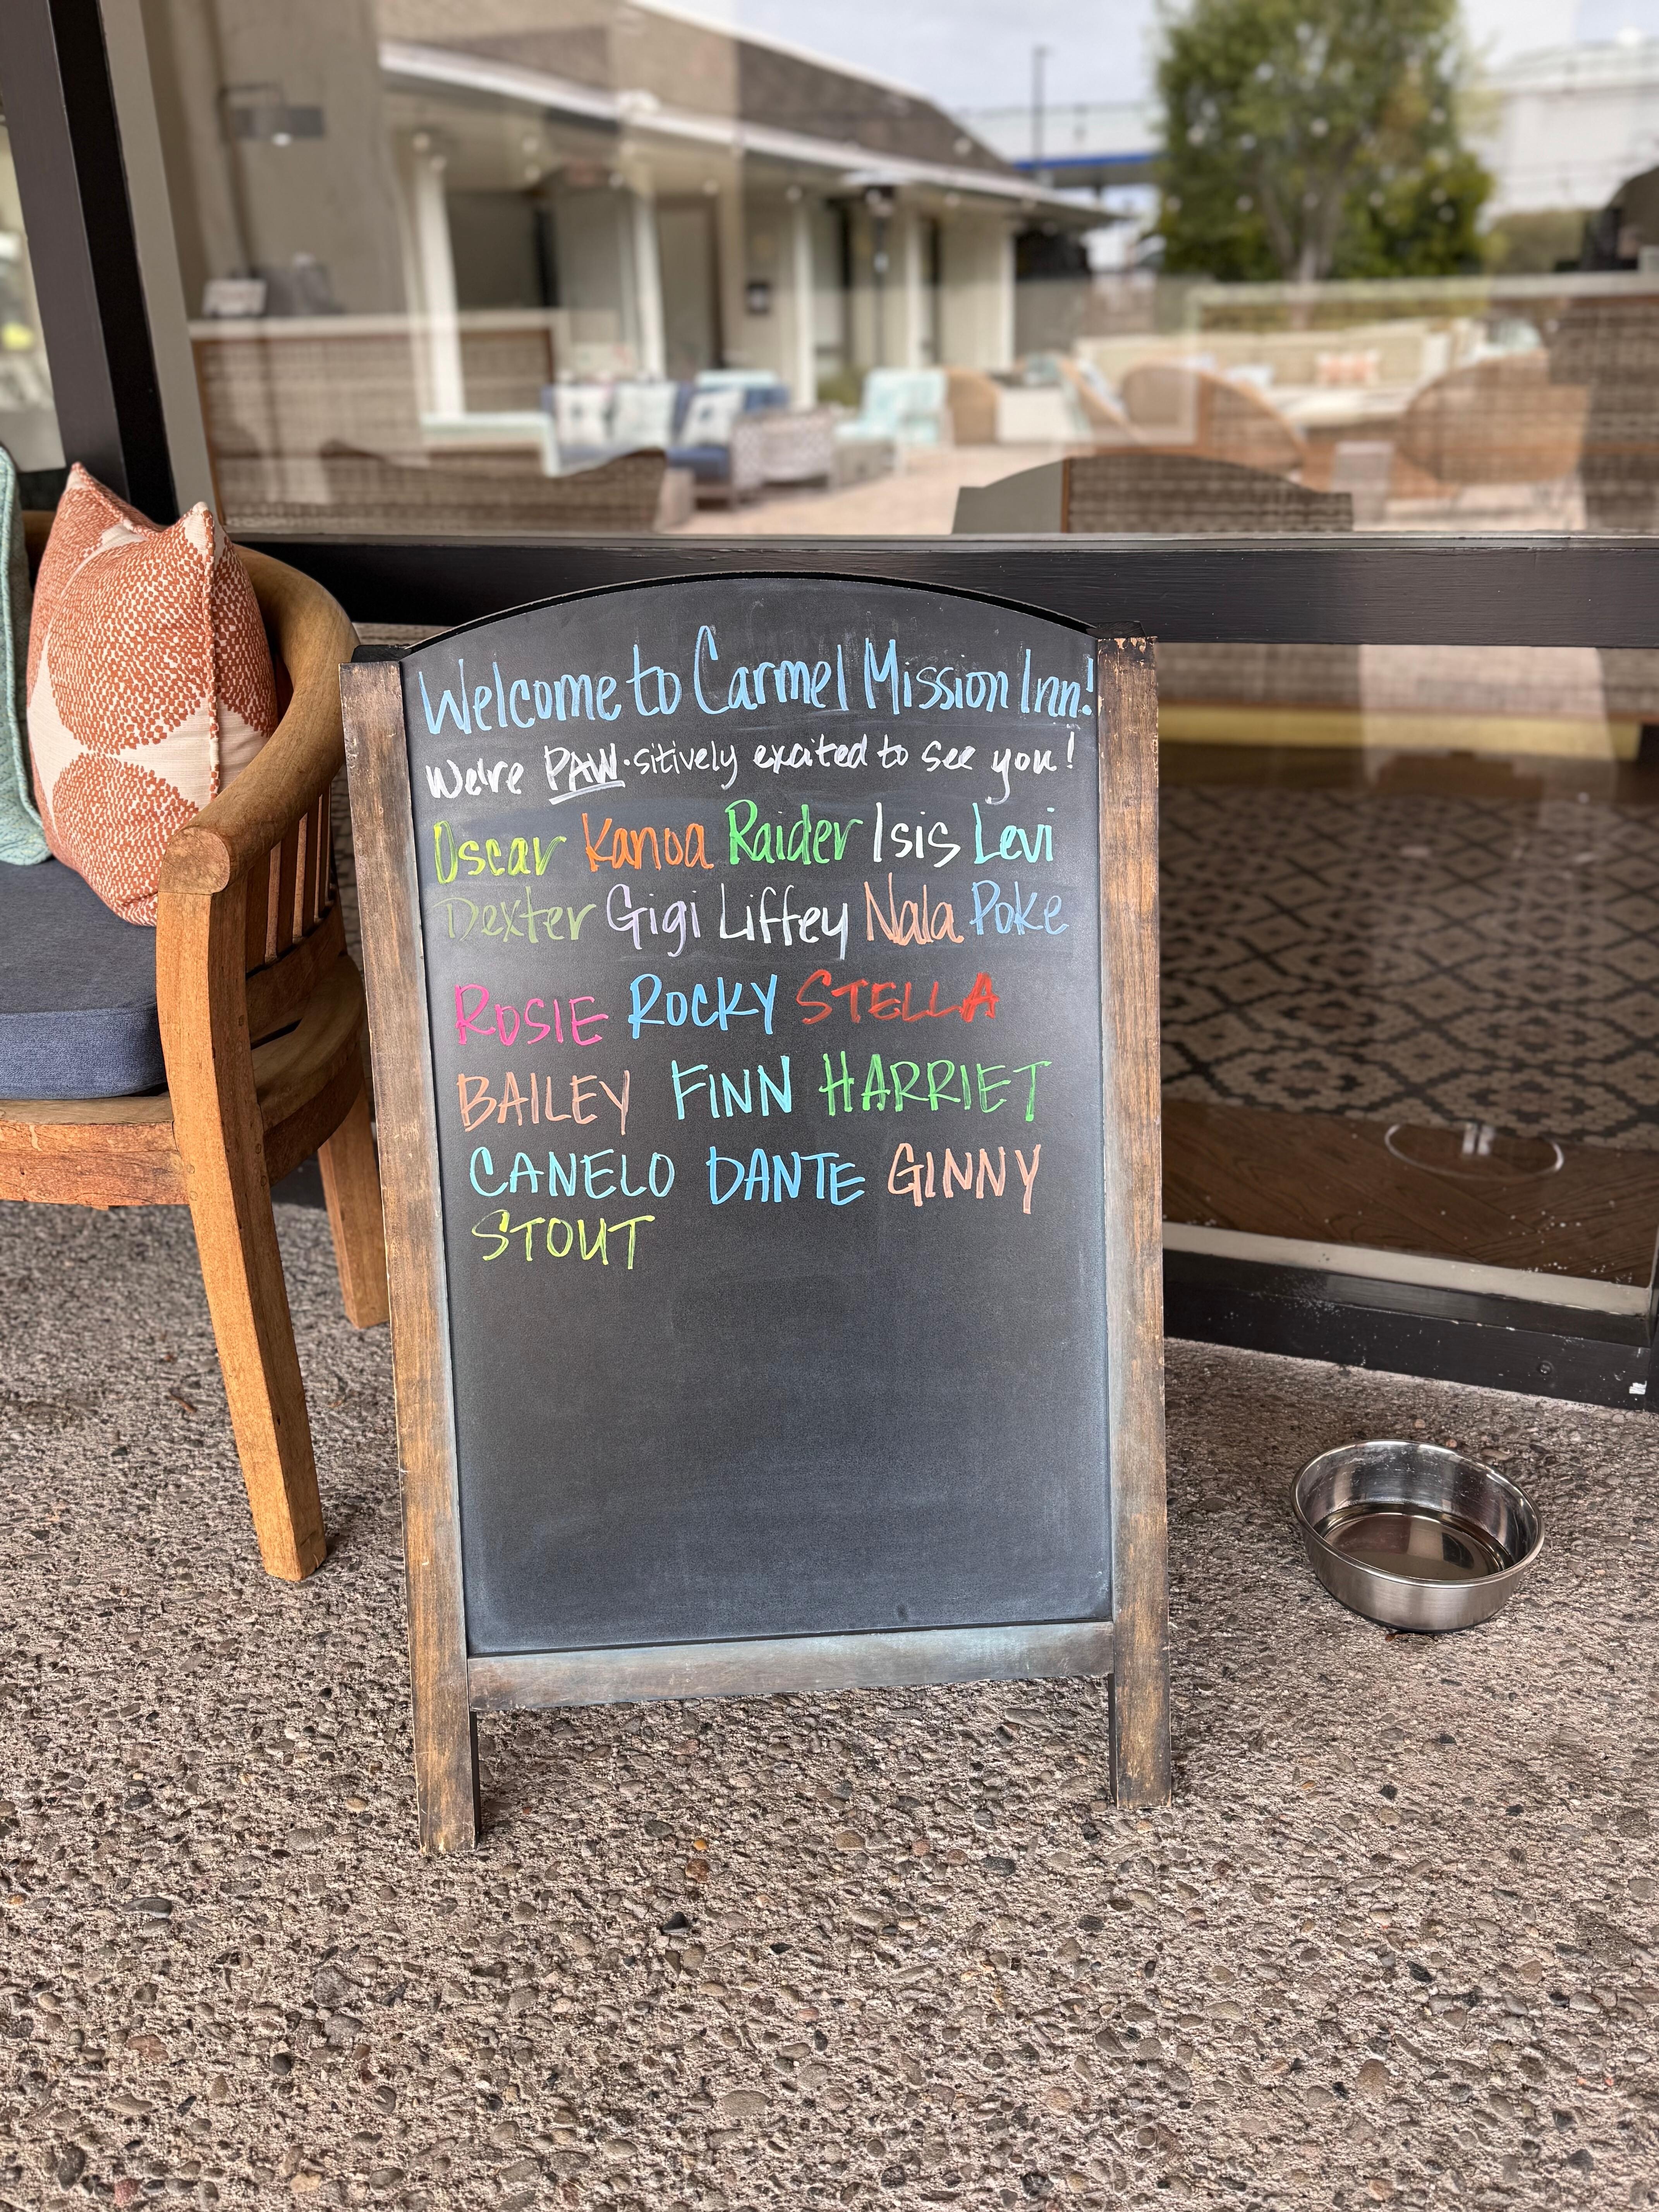 Welcome to Carmel Mission Inn!
We're PAW·sitively excited to see you!
Oscar Kanoa Raider Isis Levi
Dexter Gigi Liffey Nala Poke
ROSIE ROCKY STELLA
BAILEY FINN HARRIET
CANELO DANTE GINNY
STOUT